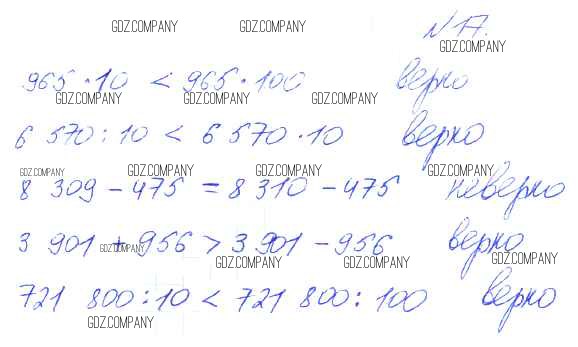 GDZ.COMPANY GDZ.COMPANY N 17.
GDZ.COMPANY
965 · 10 < 965 · 100 верно
GDZ.COMPANY GDZ.COMPANY GDZ.COMPANY
6 570 : 10 < 6 570 · 10 верно
GDZ.COMPANY GDZ.COMPANY GDZ.COMPANY GDZ.COMPANY
8 309 - 475 = 8 310 - 475 неверно
3 901 + 956 > 3 901 - 956 верно
GDZ.COMPANY GDZ.COMPANY GDZ.COMPANY GDZ.COMPANY
721 800 : 10 < 721 800 : 100 верно
GDZ.COMPANY